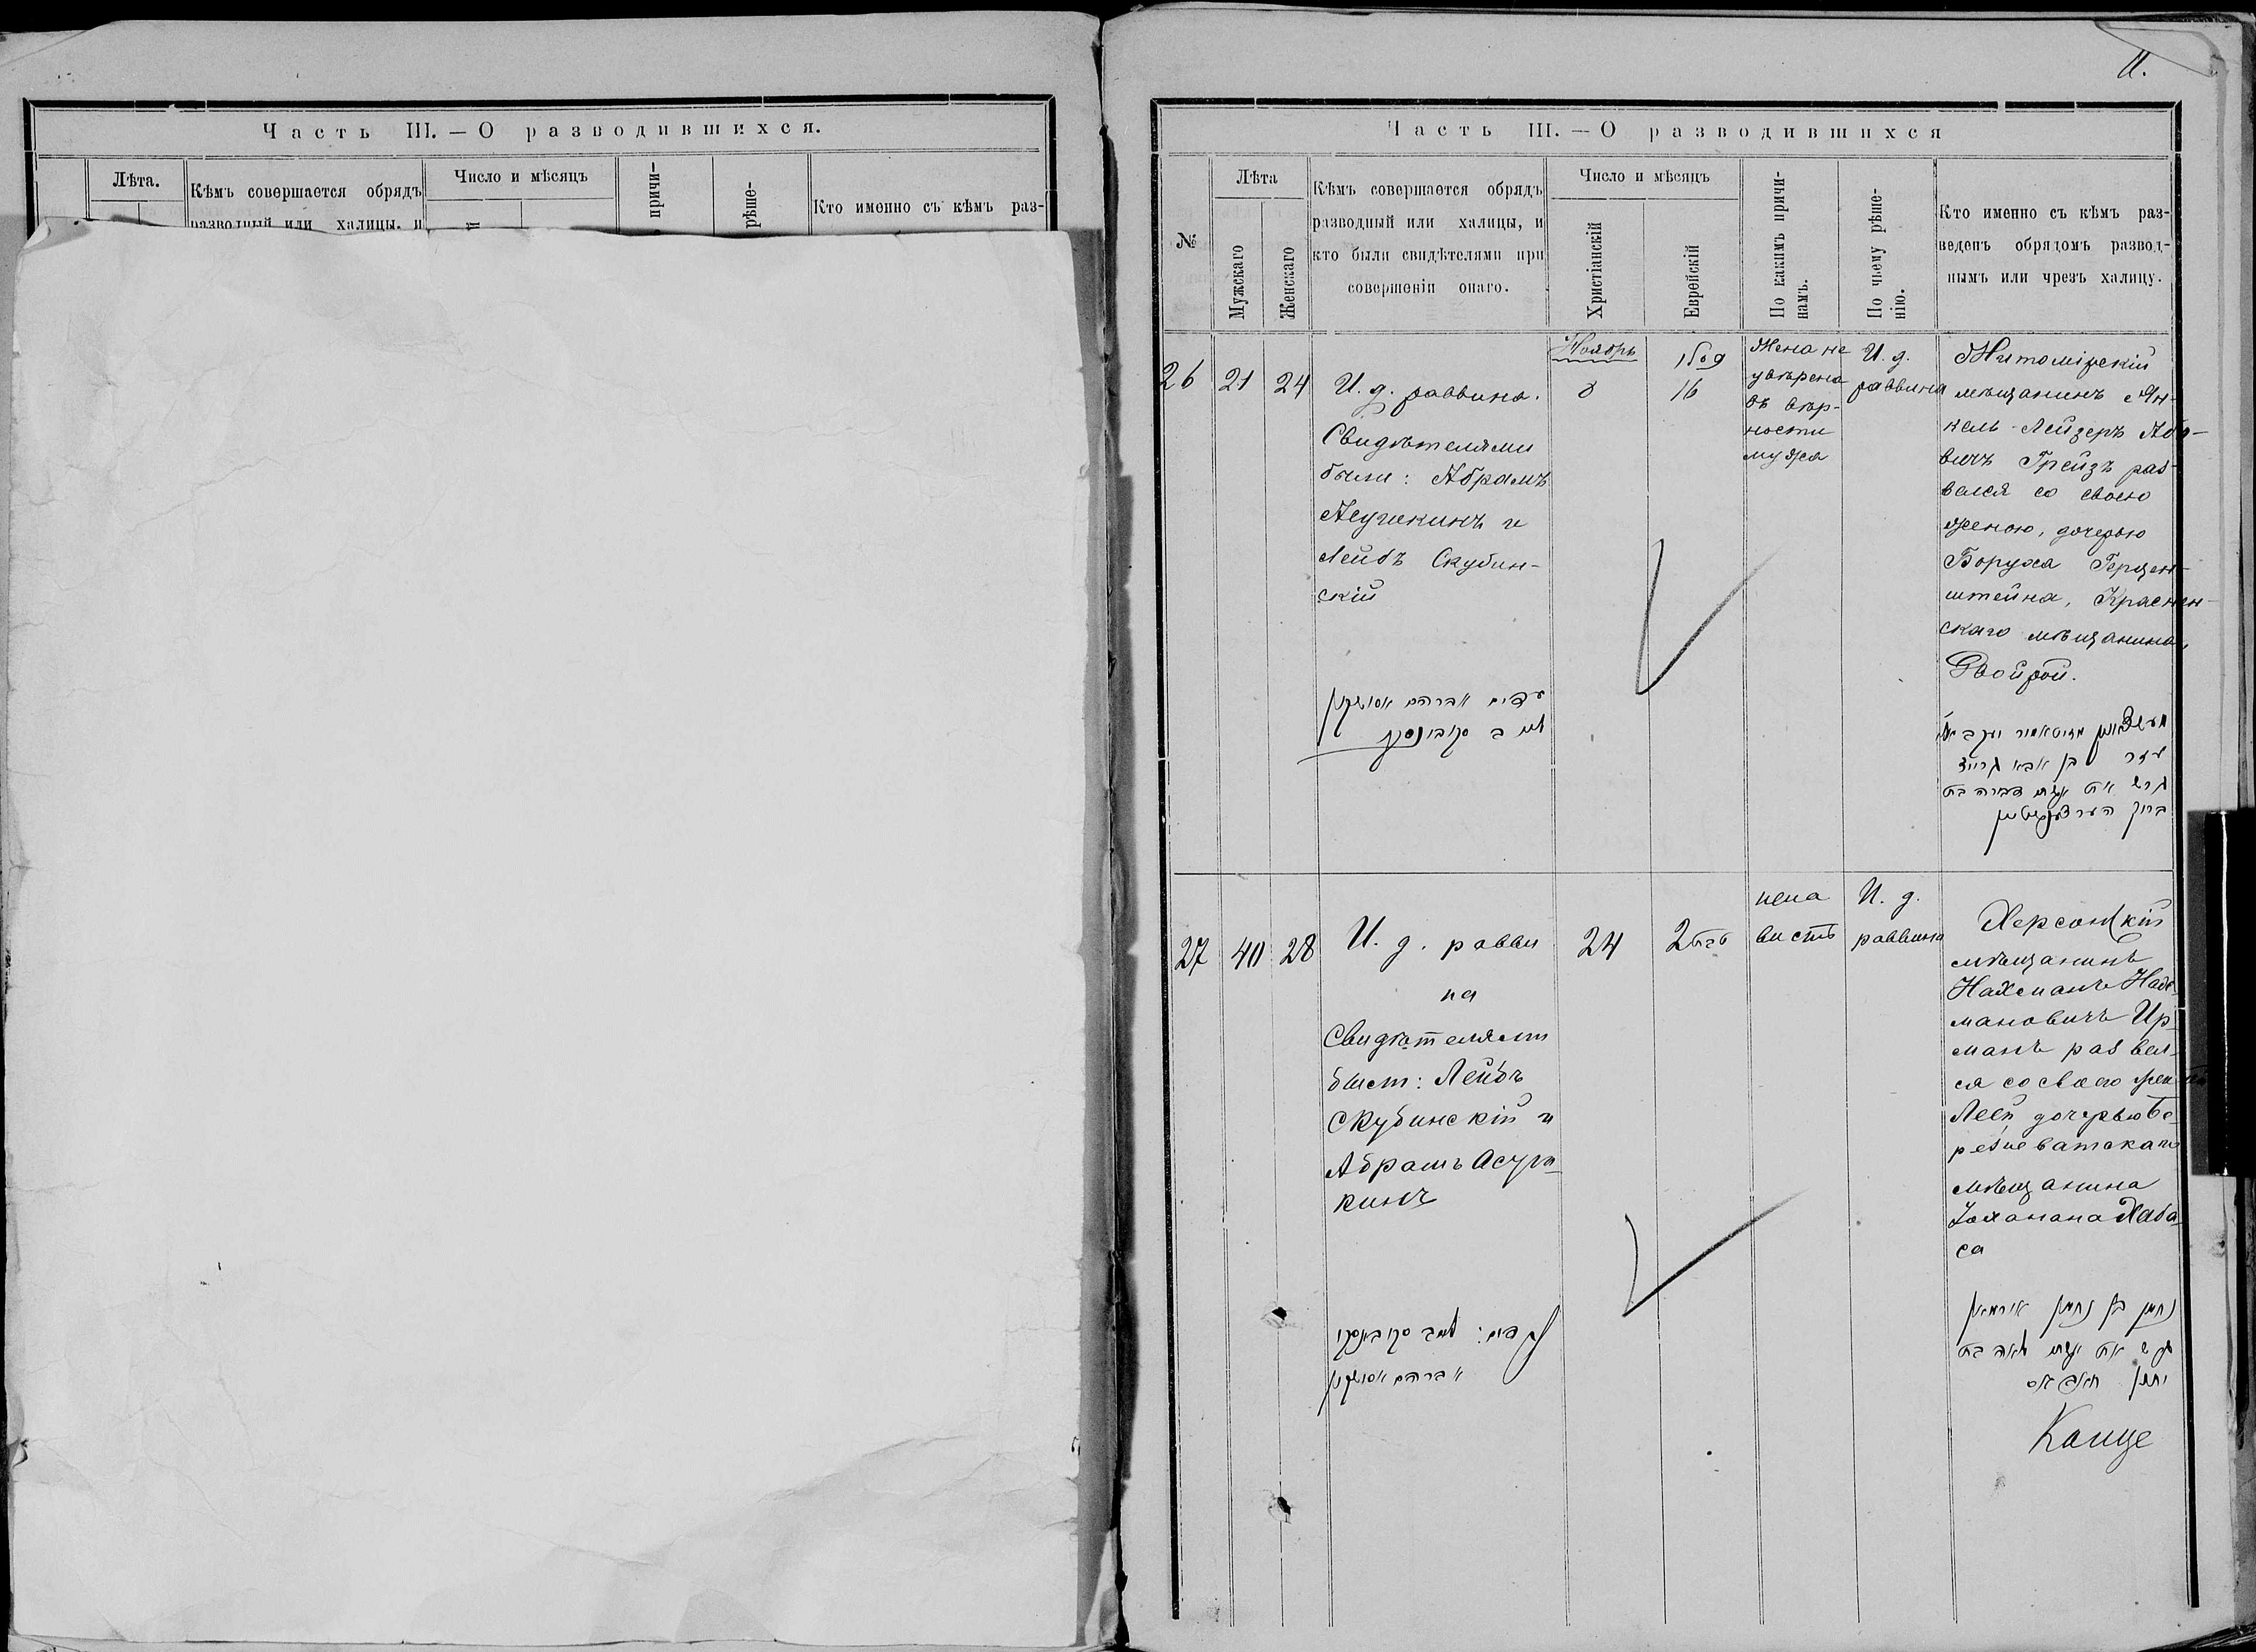 Часть III. — О разводившихся.
Лѣта.
Кѣмъ совершается обрядъ
разводный или халицы, и
Число и мѣсяцъ
причи-
рѣше-
Кто именно съ кѣмъ раз-
11.
Часть III. — О разводившихся
№
Лѣта
Мужскаго
Женскаго
Кѣмъ совершается обрядъ
разводный или халицы, и
кто были свидѣтелями при
совершеніи онаго.
Число и мѣсяцъ
Христіанскій
Еврейскій
По какимъ причи-
намъ.
По чьему рѣше-
нію.
Кто именно съ кѣмъ раз-
веденъ обрядомъ развод-
нымъ или чрезъ халицу.
26
21
24
И. д. раввина.
Свидѣтелями
были: Абрамъ
Асушкинъ и
Лейбъ Скубин-
скій
עדים אברהם אסושקין
ליב סקובינסקי
Ноябрь
8
16
Жена не
увѣрена
въ вѣр-
ности
мужа
И. д.
раввина
Житомірскій
мѣщанинъ Ян-
кель-Лейзеръ Або-
вичъ Грейзъ раз-
велся со своею
женою, дочерью
Боруха Герцен-
штейна, Краснян-
скаго мѣщанина,
Двойрой.
יעקב
בן אבא גרייז
גרש את אשתו דבורה בת
ברוך הערצענשטיין
27
40
28
И. д. равви
на
Свидѣтелями
были: Лейбъ
Скубинскій и
Абрамъ Асуш-
кинъ
עדים: ליב סקובינסקי
אברהם אסושקין
24
2
нена
висть
И. д.
раввина
Херсонскій
мѣщанинъ
Нахманъ Нах-
мановичъ Ир-
манъ развел-
ся со своею женою
Леей дочерью Бе-
резневатскаго
мѣщанина
Іоханана Хаба-
са
נחמן בן נחמן אירמאן
גרש את אשתו לאה בת
יוחנן